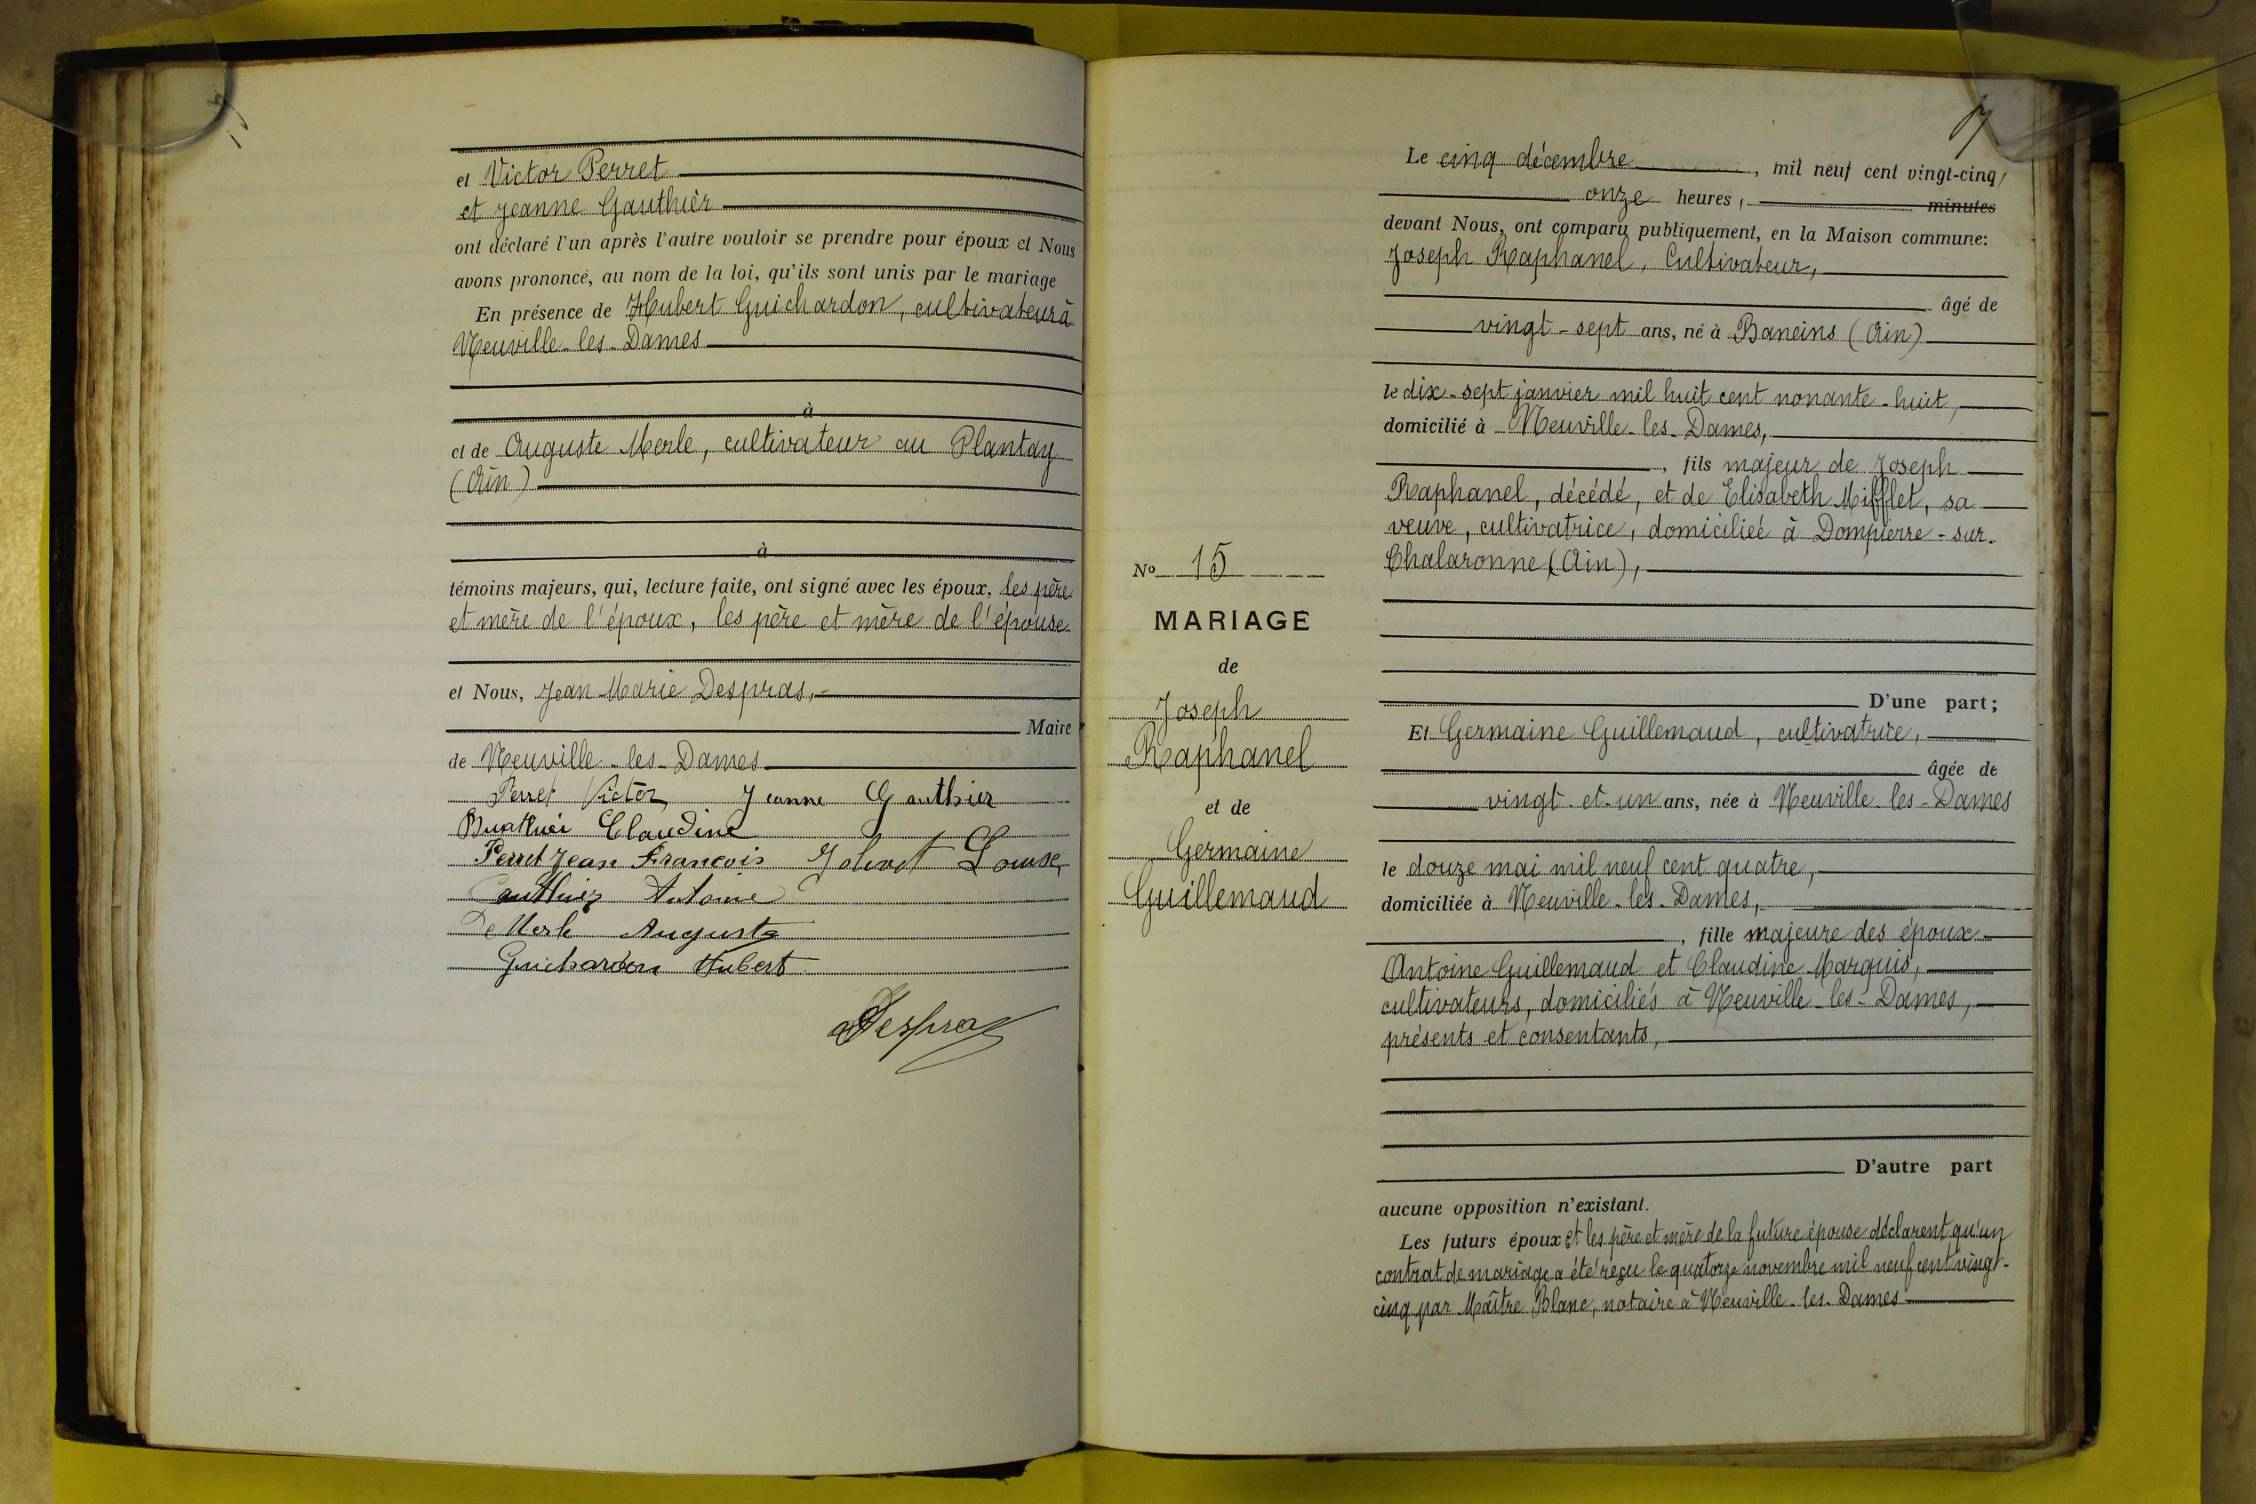 et Victor Perret
et Jeanne Gauthièr
ont déclaré l'un après l'autre vouloir se prendre pour époux et Nous
avons prononcé, au nom de la loi, qu'ils sont unis par le mariage
En présence de Hubert Guichardon, cultivateur à
Neuville-les-Dames
à
et de Auguste Merle, cultivateur au Plantay
(Ain)
à
témoins majeurs, qui, lecture faite, ont signé avec les époux, les père
et mère de l'époux, les père et mère de l'épouse
et Nous, Jean-Marie Despras,
Maire
de Neuville-les-Dames
Perret Victor Jeanne Gauthier
Claudine
Perret Jean François Jolivet Louise
Gauthier Antoine
Merle Auguste
Guichardon Hubert
Despras
Le cinq décembre, mil neuf cent vingt-cinq,
onze heures, minutes
devant Nous, ont comparu publiquement, en la Maison commune:
Joseph Raphanel, Cultivateur,
âgé de
vingt-sept ans, né à Baneins (Ain)
le dix-sept janvier mil huit cent nonante-huit,
domicilié à Neuville-les-Dames,
, fils majeur de Joseph
Raphanel, décédé, et de Elisabeth Mifflet, sa
veuve, cultivatrice, domiciliée à Dompierre-sur-
Chalaronne (Ain),
D'une part;
Nº 15
MARIAGE
de
Joseph
Raphanel
et de
Germaine
Guillemaud
Et Germaine Guillemaud, cultivatrice,
âgée de
vingt-et-un ans, née à Neuville-les-Dames
le douze mai mil neuf cent quatre,
domiciliée à Neuville-les-Dames,
, fille majeure des époux
Antoine Guillemaud et Claudine Marquis,
cultivateurs, domiciliés à Neuville-les-Dames,
présents et consentants,
D'autre part
aucune opposition n'existant.
Les futurs époux et les père et mère de la future épouse déclarent qu'un
contrat de mariage a été reçu le quatorze novembre mil neuf cent vingt-
cinq par Maître Blanc, notaire à Neuville-les-Dames